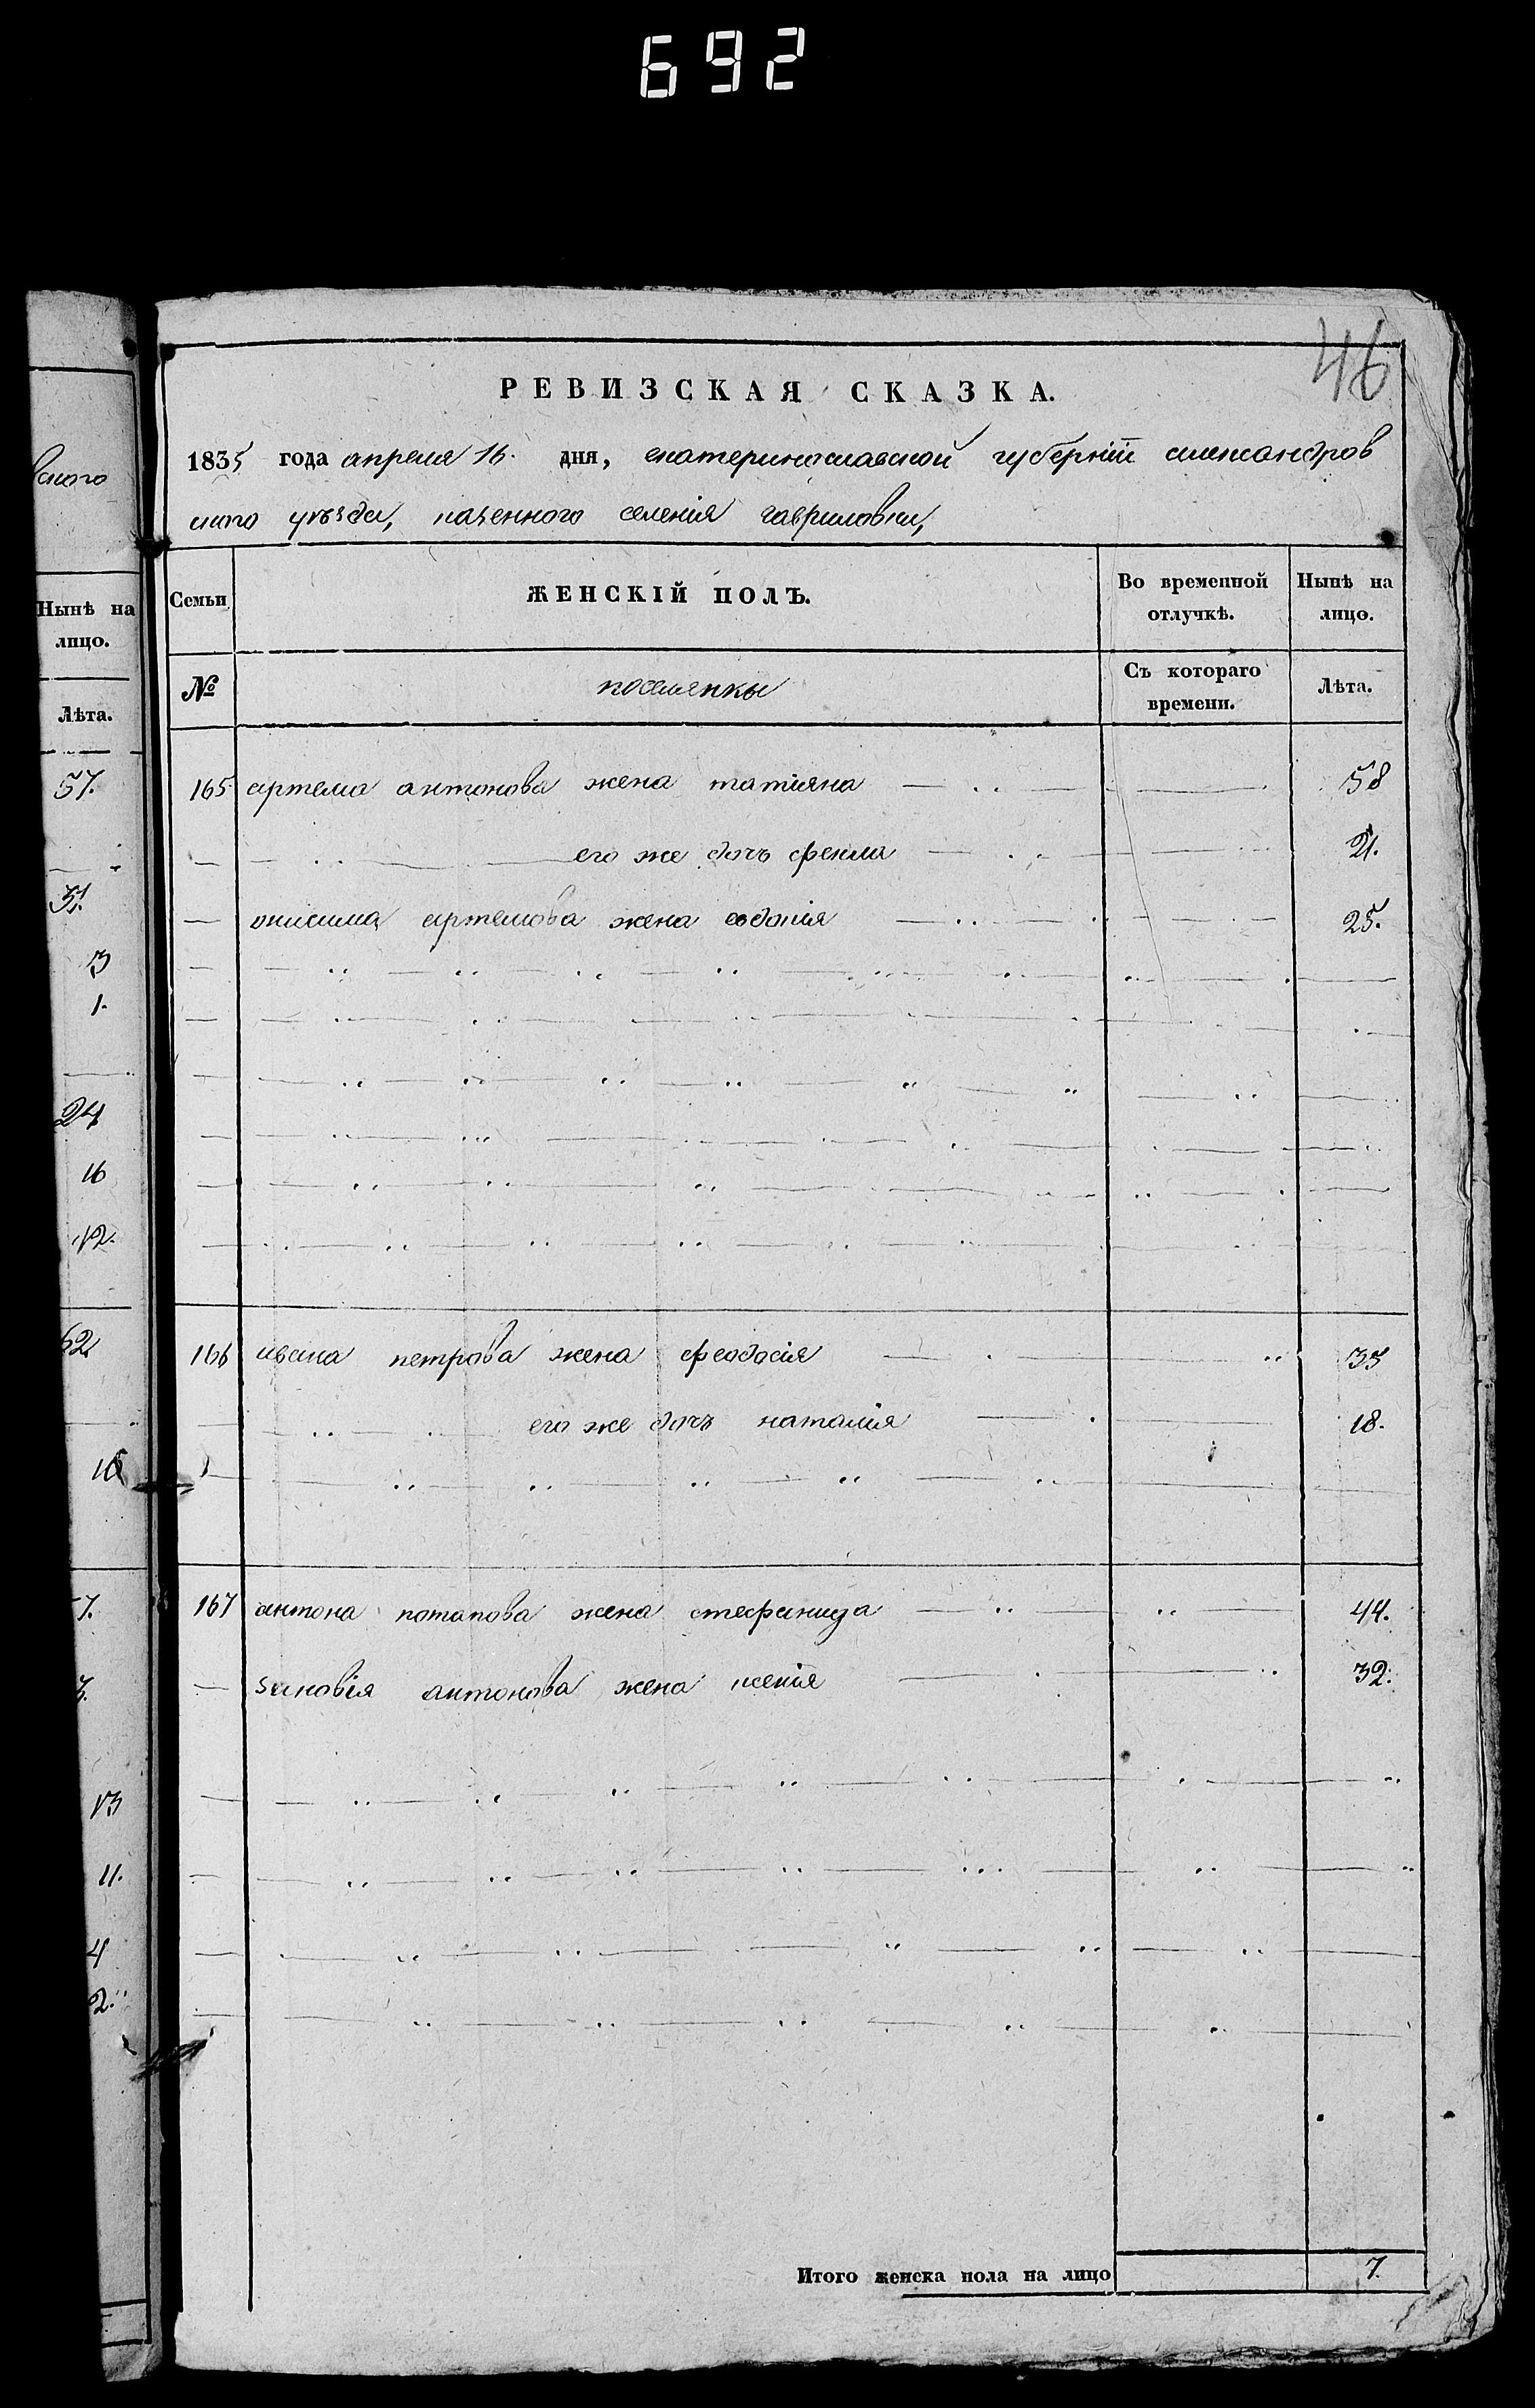 692
46
РЕВИЗСКАЯ СКАЗКА.
1835 года апреля 16. дня, екатеринославской губерніи александров
ского уѣзда, казенного селенія гавриловки,
Семьи
ЖЕНСКІЙ ПОЛЪ.
Во временной отлучкѣ.
Нынѣ на лицо.
№
поселянки
Съ котораго времени.
Лѣта.
165 артема антонова жена татіяна 58
его же дочь фекла 21.
онисима артемова жена евдокія 25.
166 ивана петрова жена феодосія 33
его же дочь наталія 18.
167 антона потапова жена стефанида 44.
зиновія антонова жена ксенія 32.
Итого женска пола на лицо 7
ского
Нынѣ на
лицо.
Лѣта.
57.
31.
3
1.
24
16
12.
62
16
7.
13
11.
4
2.